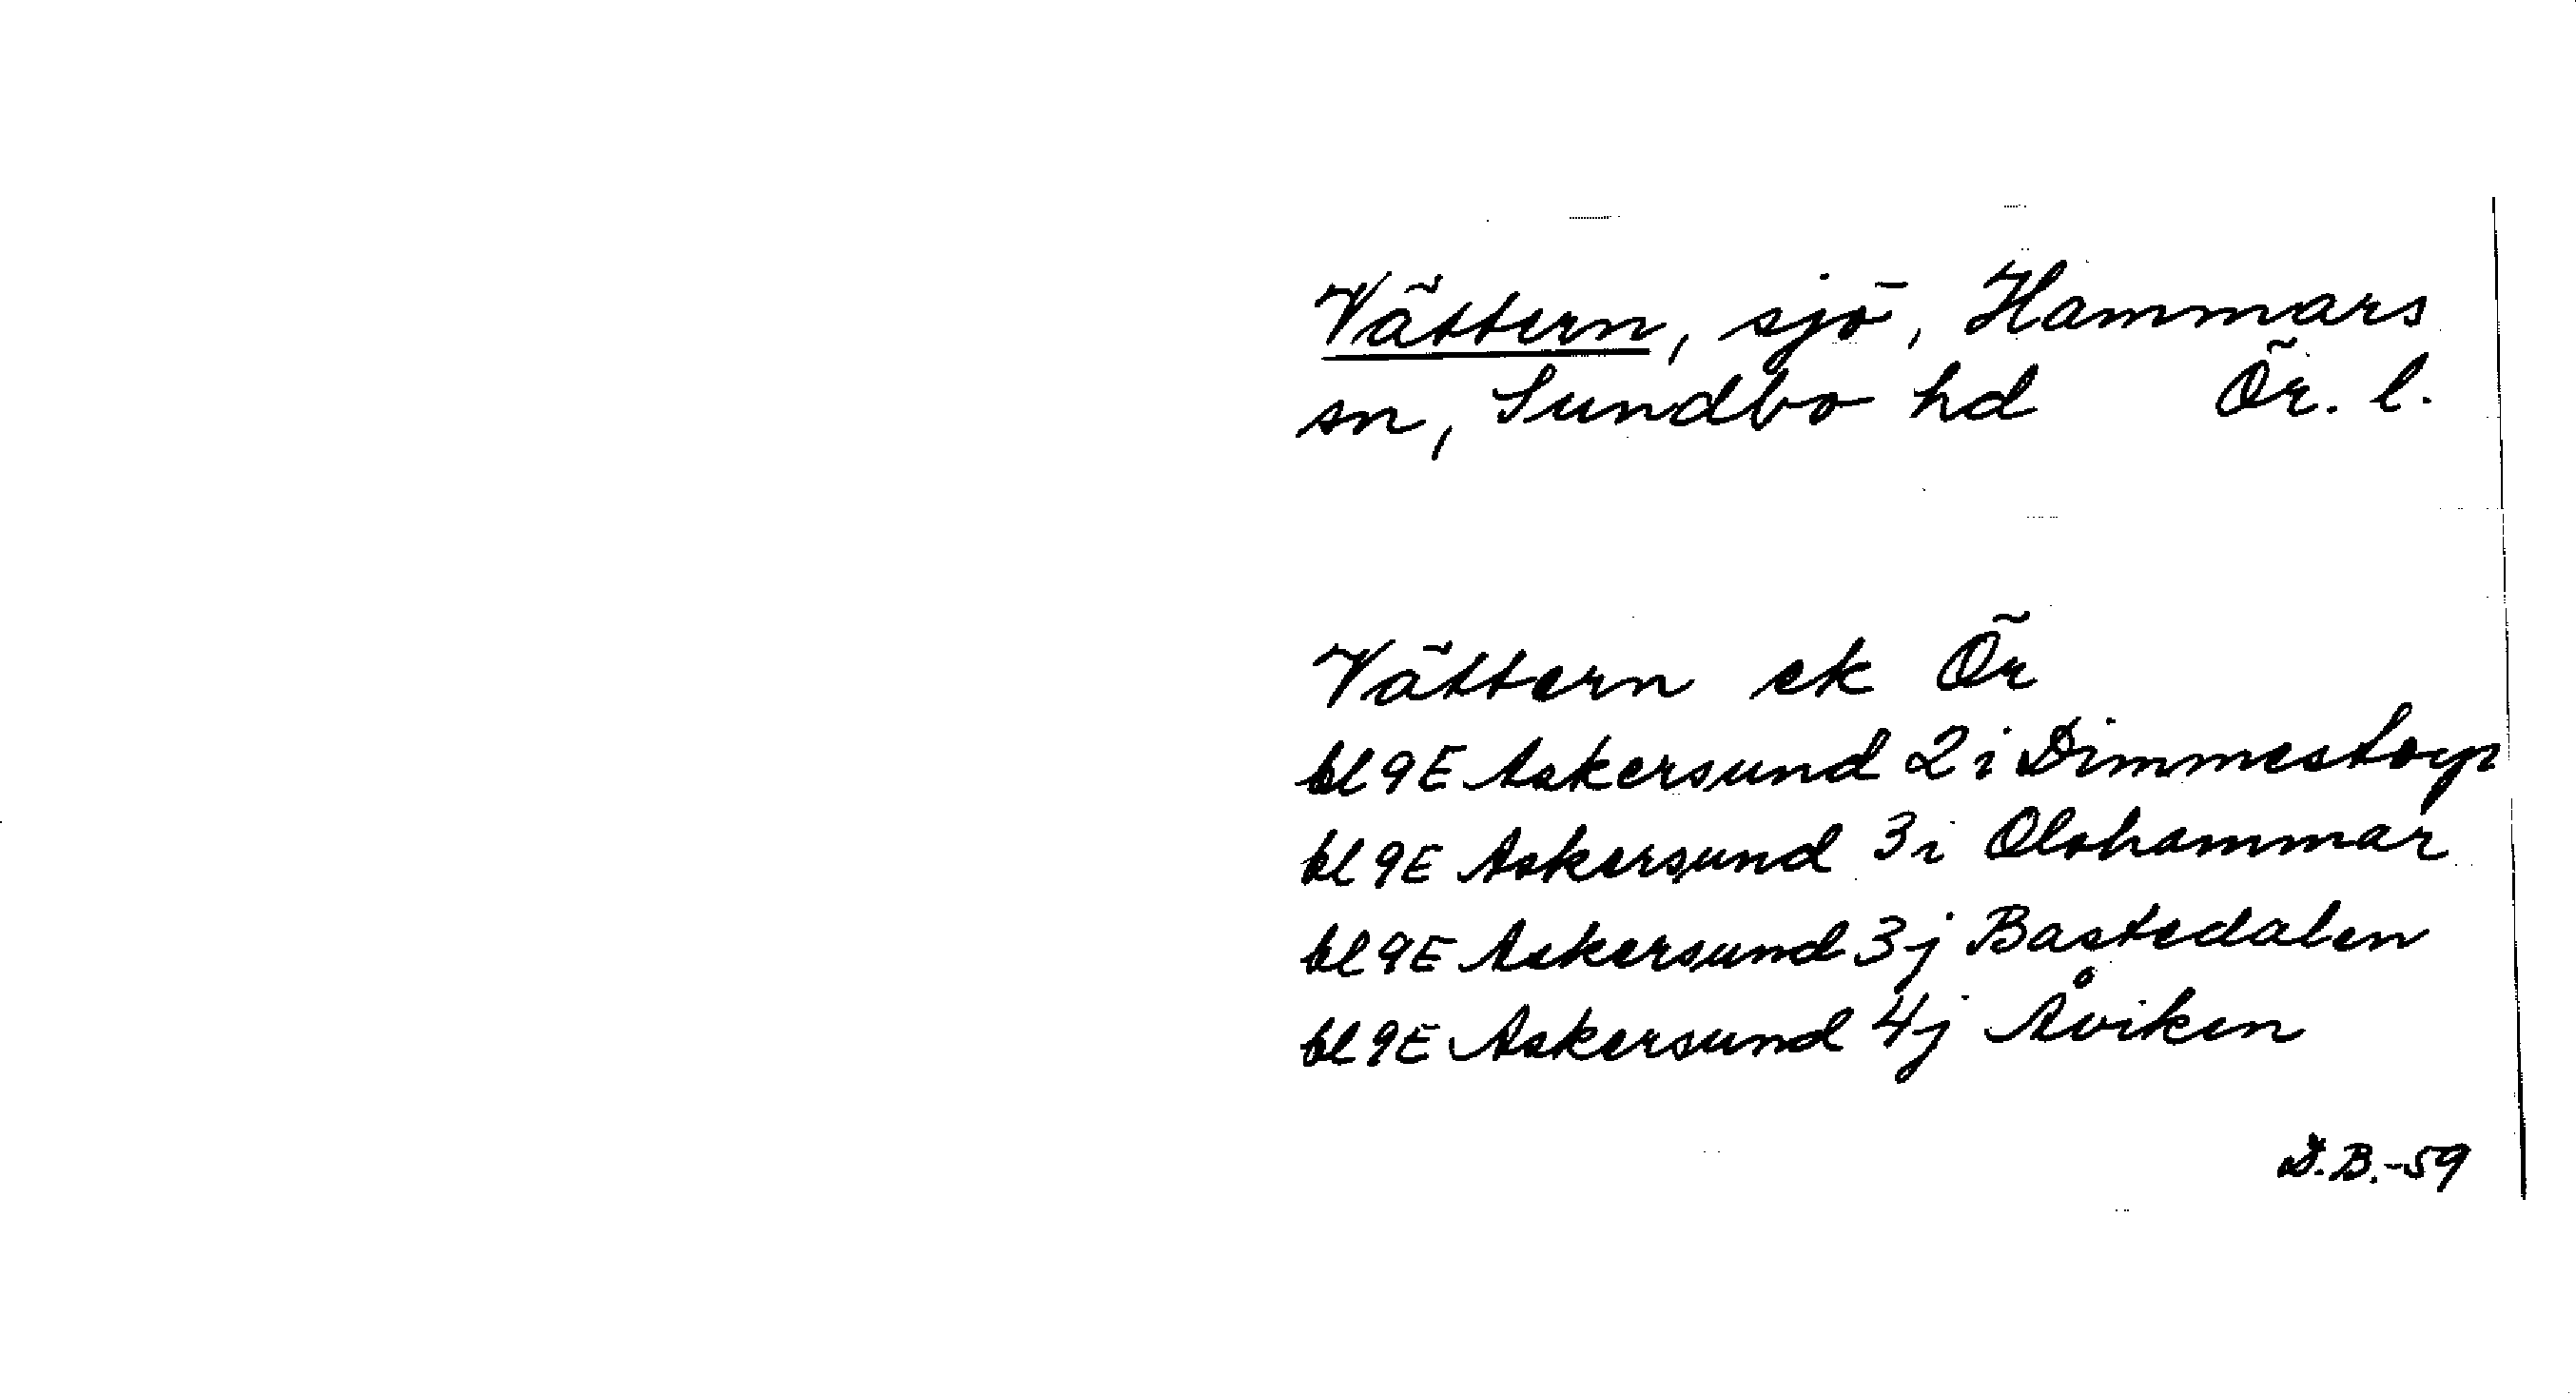 Vättern, sjö, Hammars
sn, Sundbo hd Ör. l.
Vättern ek Ör
bl 9E Askersund 2i Dimmestorp
bl 9E Askersund 3i Olshammar
bl 9E Askersund 3j Bastedalen
bl 9E Askersund 4j Åviken
D.B.-59